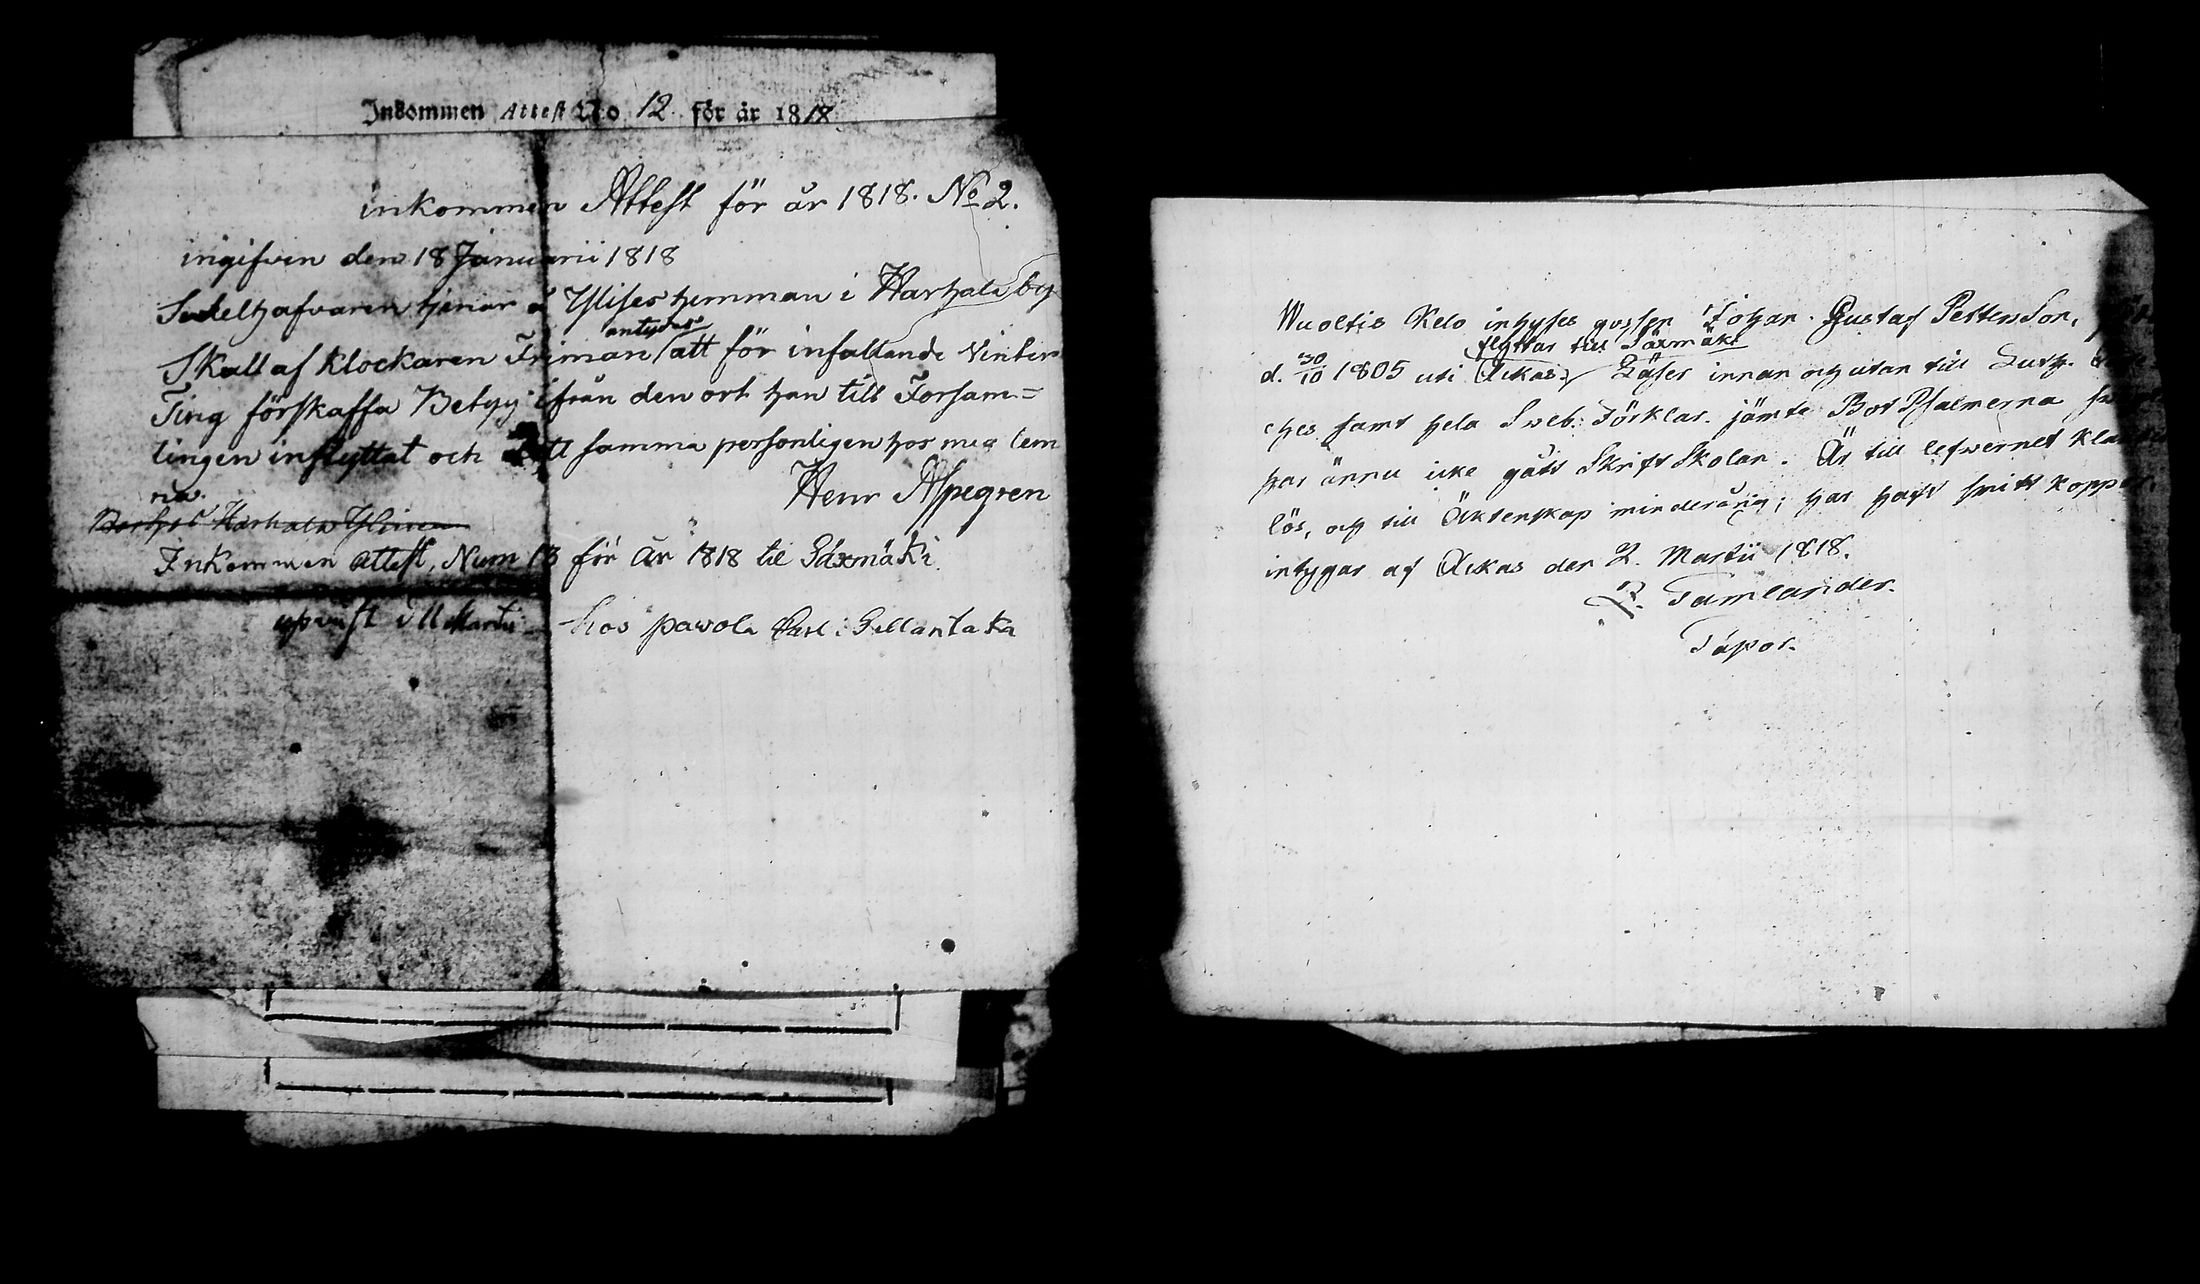 Inkommen Attest No 12 för år 1818
inkommen Attest för år 1818. No 2.
ingifven den 18 Januarii 1818
Sedelhafvaren tjenar å Ylises hemman i Harhala by
antydes
Skall af klockaren Friman att för infallande Vinter
Ting förskaffa Betyg ifrån den ort han till Forsam=
lingen inflyttat och att samma personligen hos mig lem
na.
Henr Aspegren
Harhala
Inkommen Attest, Num 13 för År 1818 til Säxmäki.
upvist d 11 Martii hos Pawola Carl i
Wuoltis Kelo inhyses gossen Johan Gustaf Petterson,
flyttar till Säxmäki
d. 30/10 1805 uti Ackas, Läser innan och utan till Luth.
ches samt hela Sweb. Förklar. jämte Bot Psalmerna
har ännu icke gått Skrift Skolan. Är till lefwernet
lös, och till Äktenskap minderårig; har haft smitt koppor,
intygar af Ackas den 2. Martii 1818.
Tamlander.